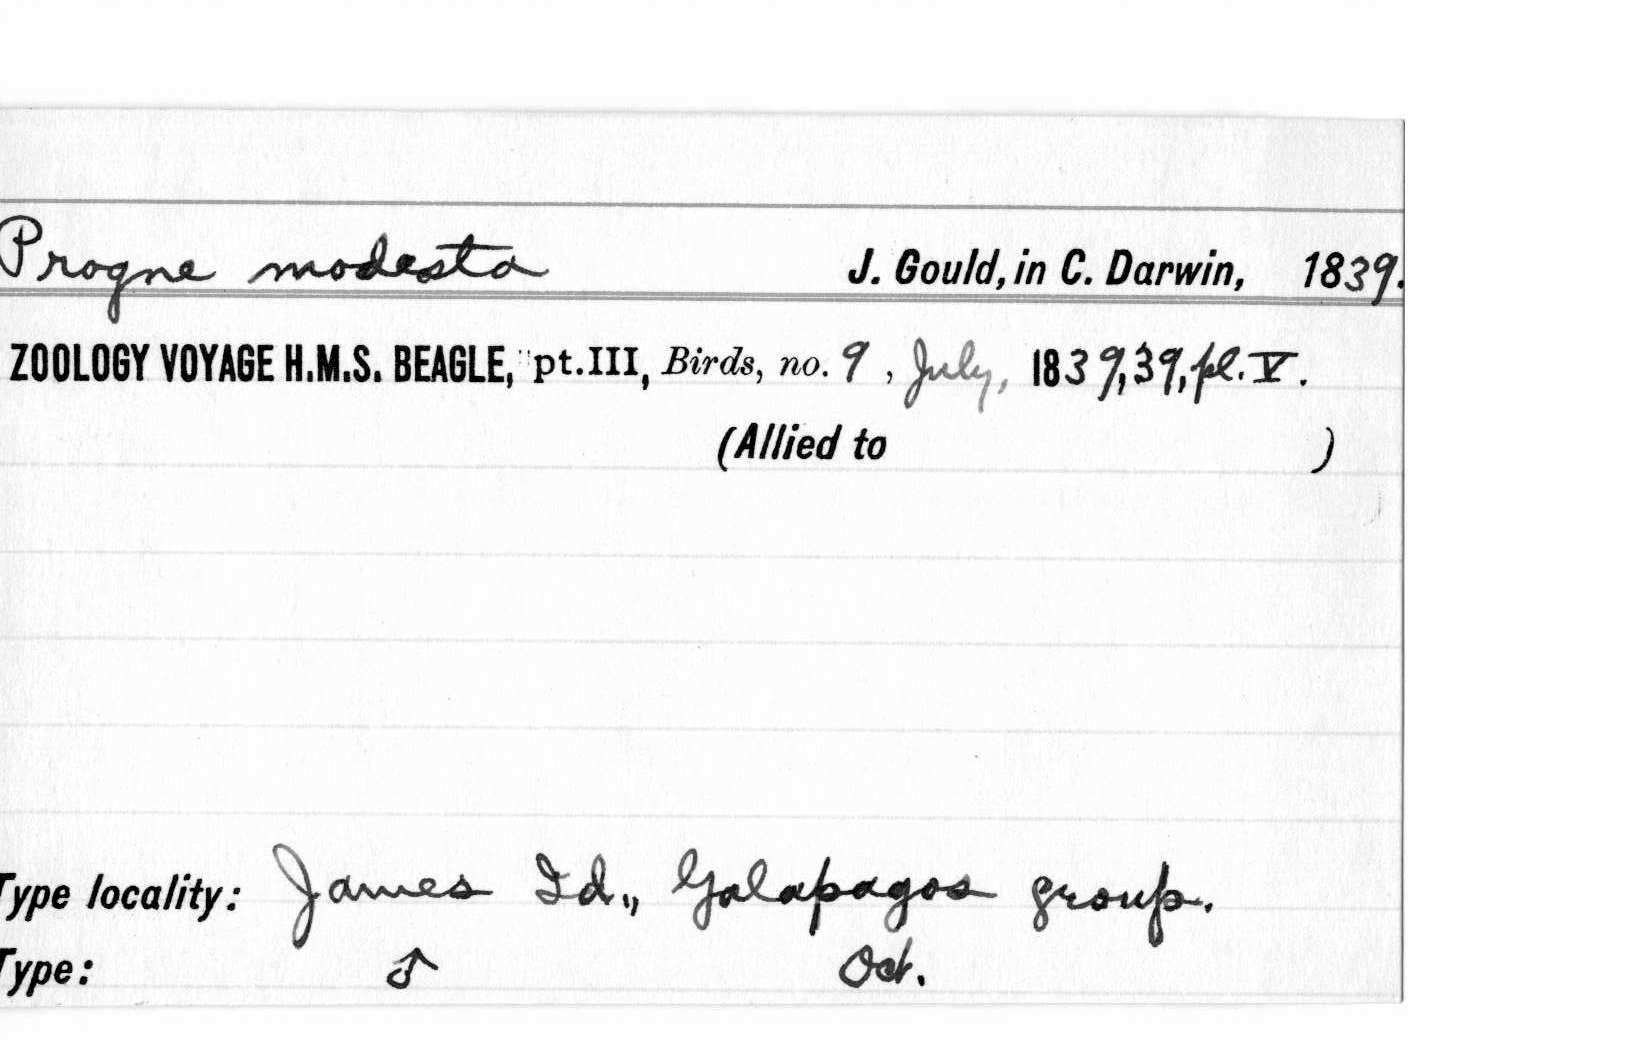 Progne modesta J. Gould, in C. Darwin, 1839.
ZOOLOGY VOYAGE H.M.S. BEAGLE, pt.III, Birds, no. 9, July, 1839, 39, pl. V.
(Allied to )
Type locality: James Id., Galapagos group.
Type: ♂ Oct.